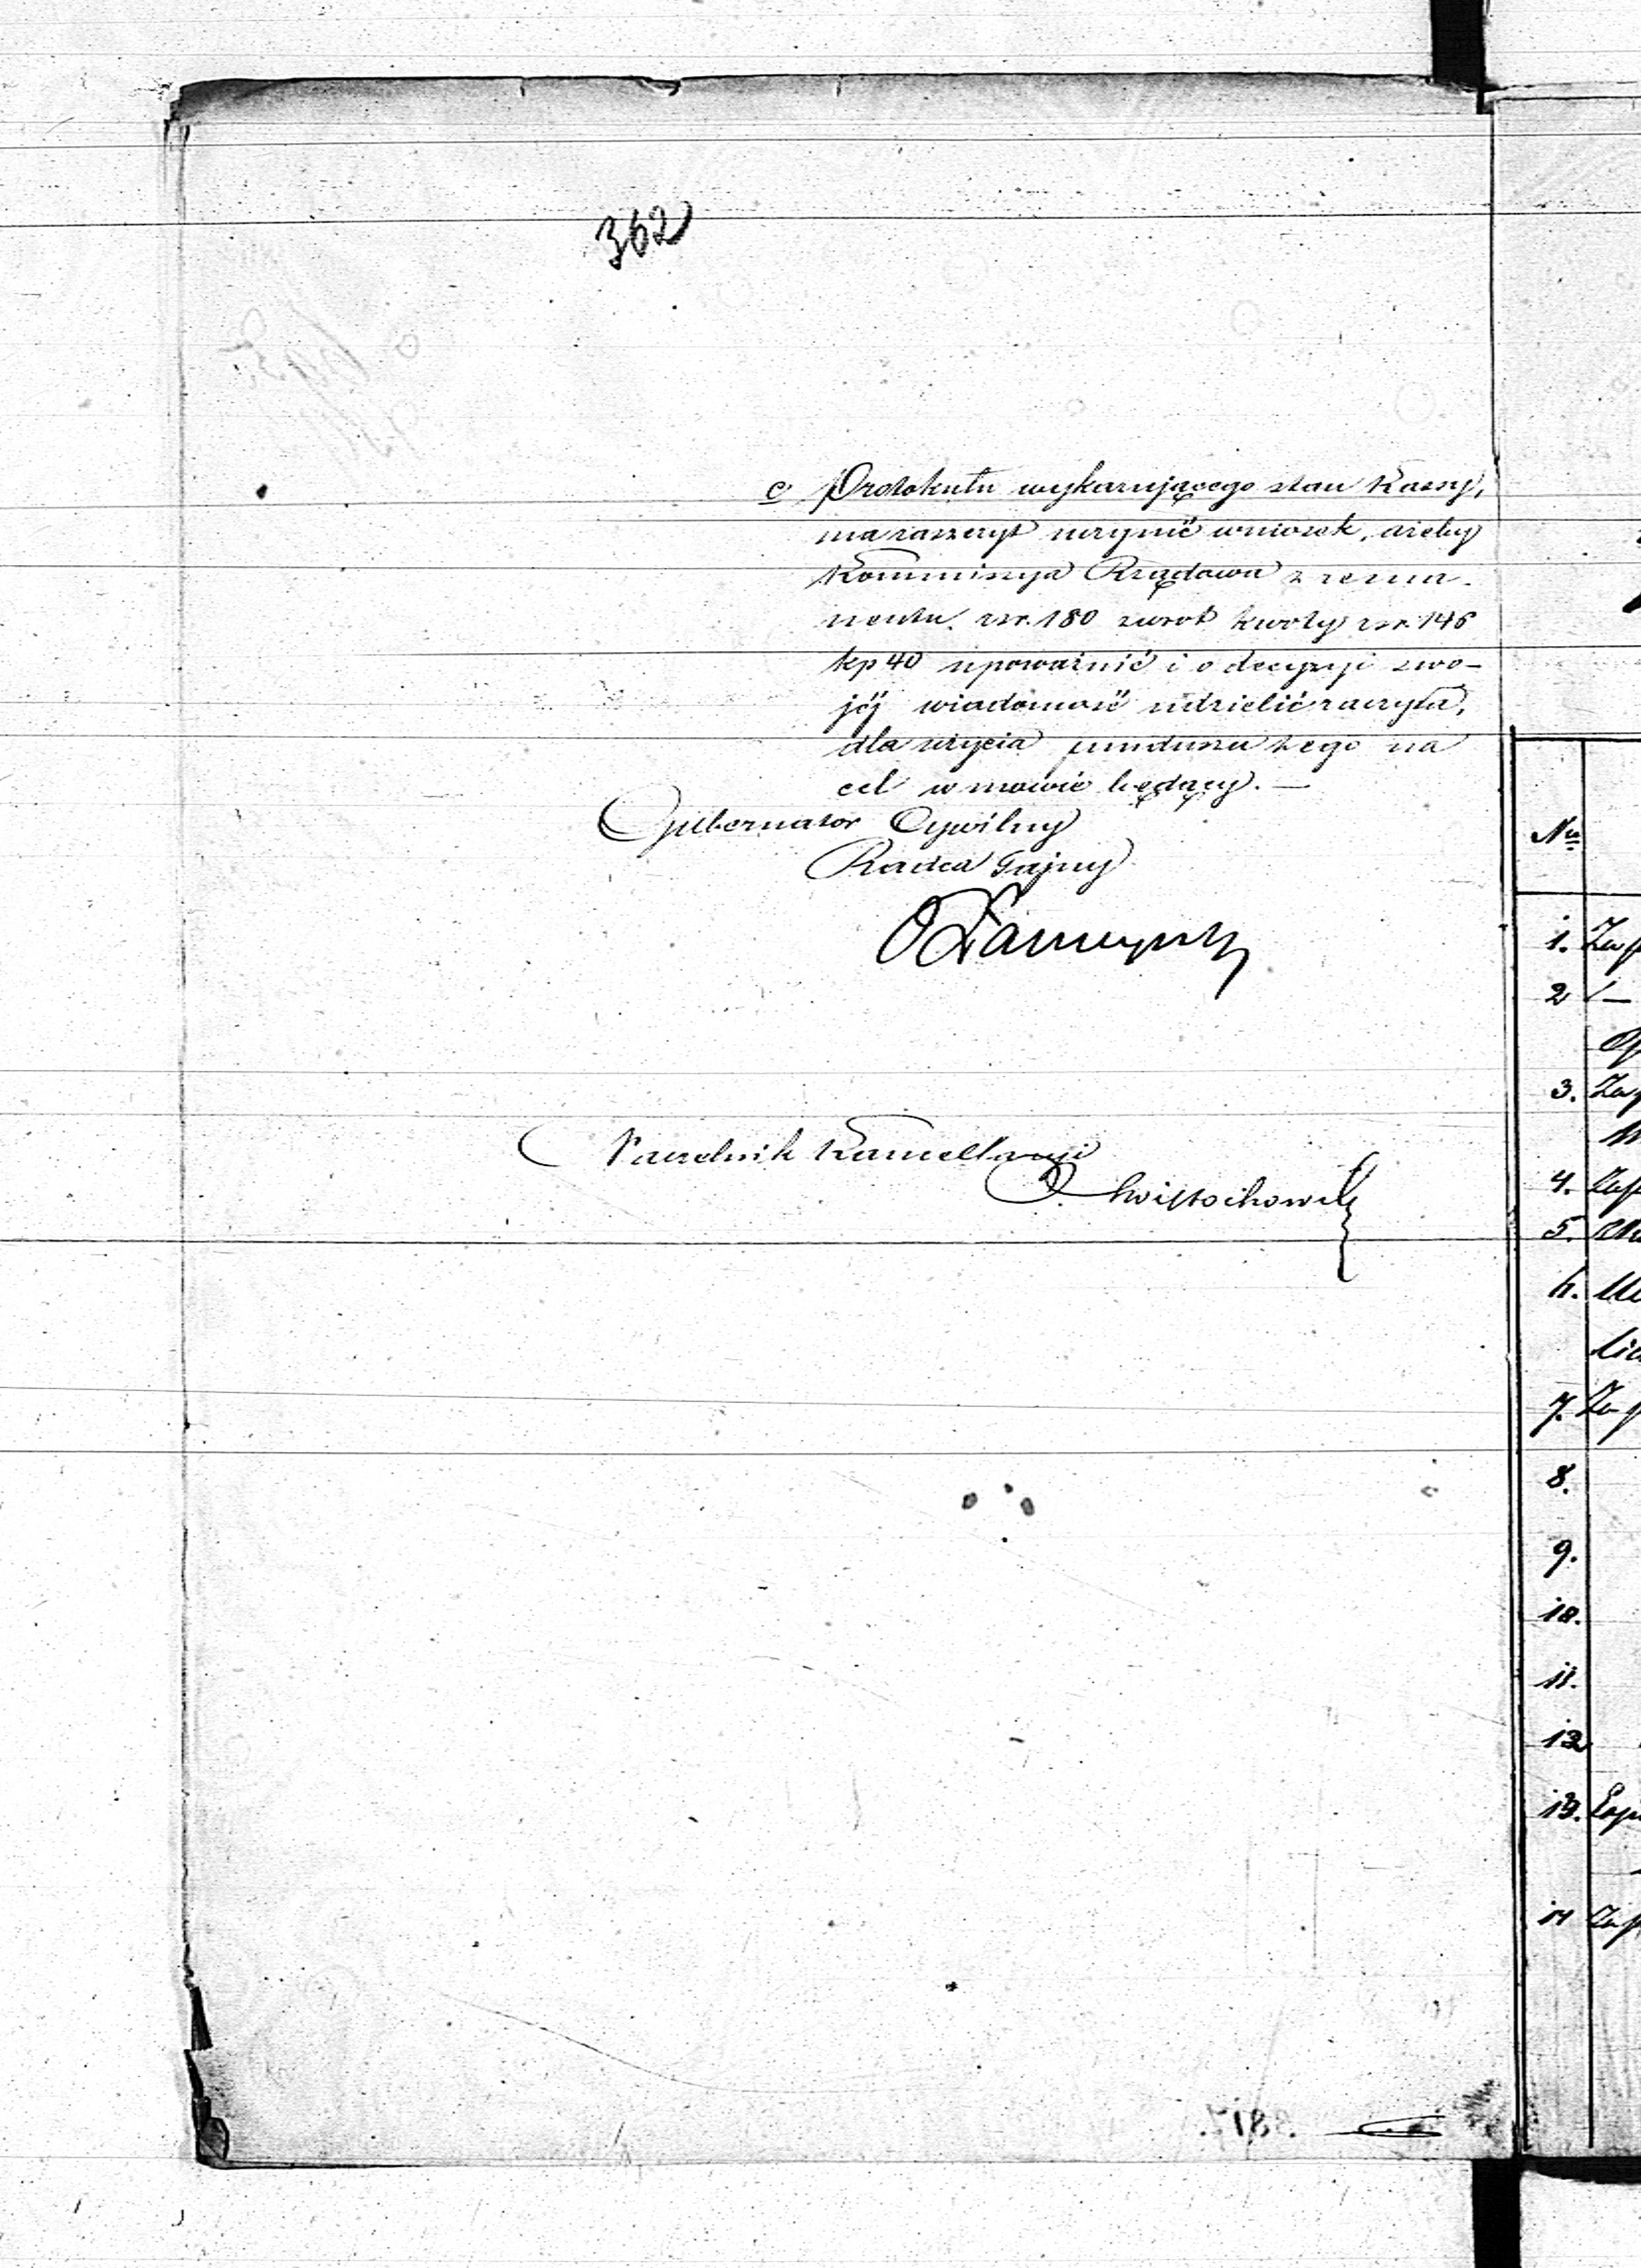 362
c Protokułu wykazującego stan Kassy,
ma zaszczyt uczynić wniosek, ażeby
Kommissya Rządowa z rema-
nentu rsr. 180 zwrot kwoty rsr. 146
kp 40 upoważnić i o decyzyi swo-
jéj wiadomość udzielić raczyła,
dla użycia funduszu tego na
cel w mowie będący. —
Gubernator Cywilny
Radca Tajny
Naczelnik Kancellaryi
No
1. Zap
2 —
3. Zap
4. Zap
5.
6.
7. Za
8.
9.
10.
11.
12
13.
14 Zap